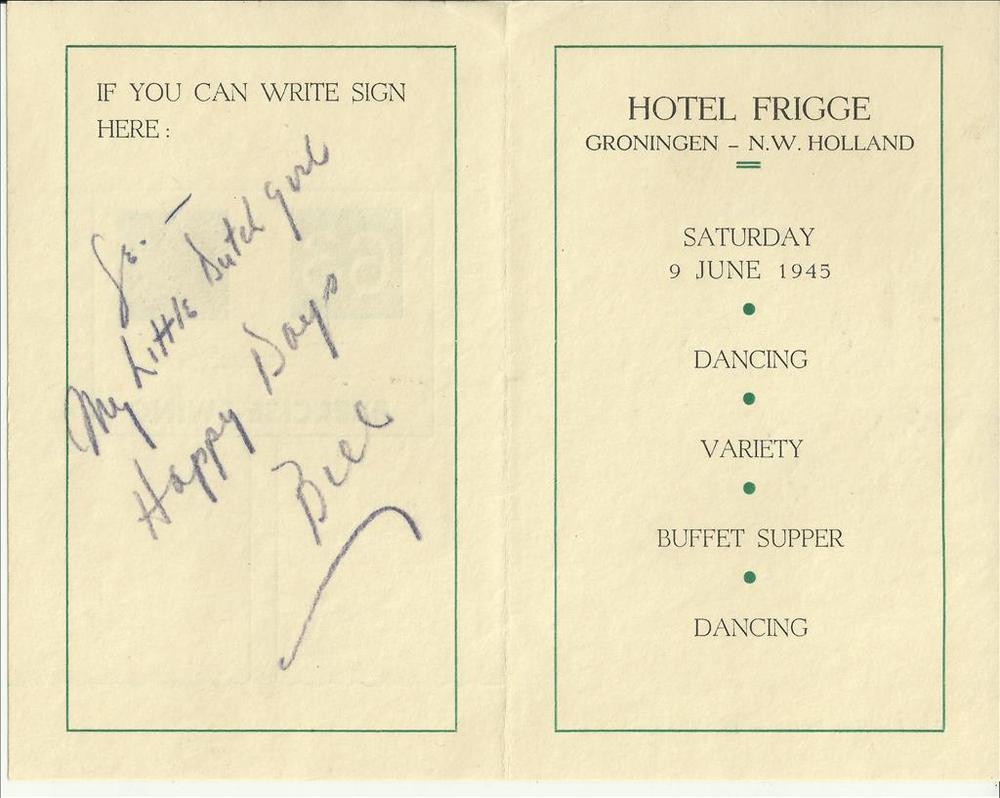 IF YOU CAN WRITE SIGN
HERE :
My Little Dutch Girl
Happy Days
Bill
HOTEL FRIGGE
GRONINGEN – N.W. HOLLAND
SATURDAY
9 JUNE 1945
DANCING
VARIETY
BUFFET SUPPER
DANCING